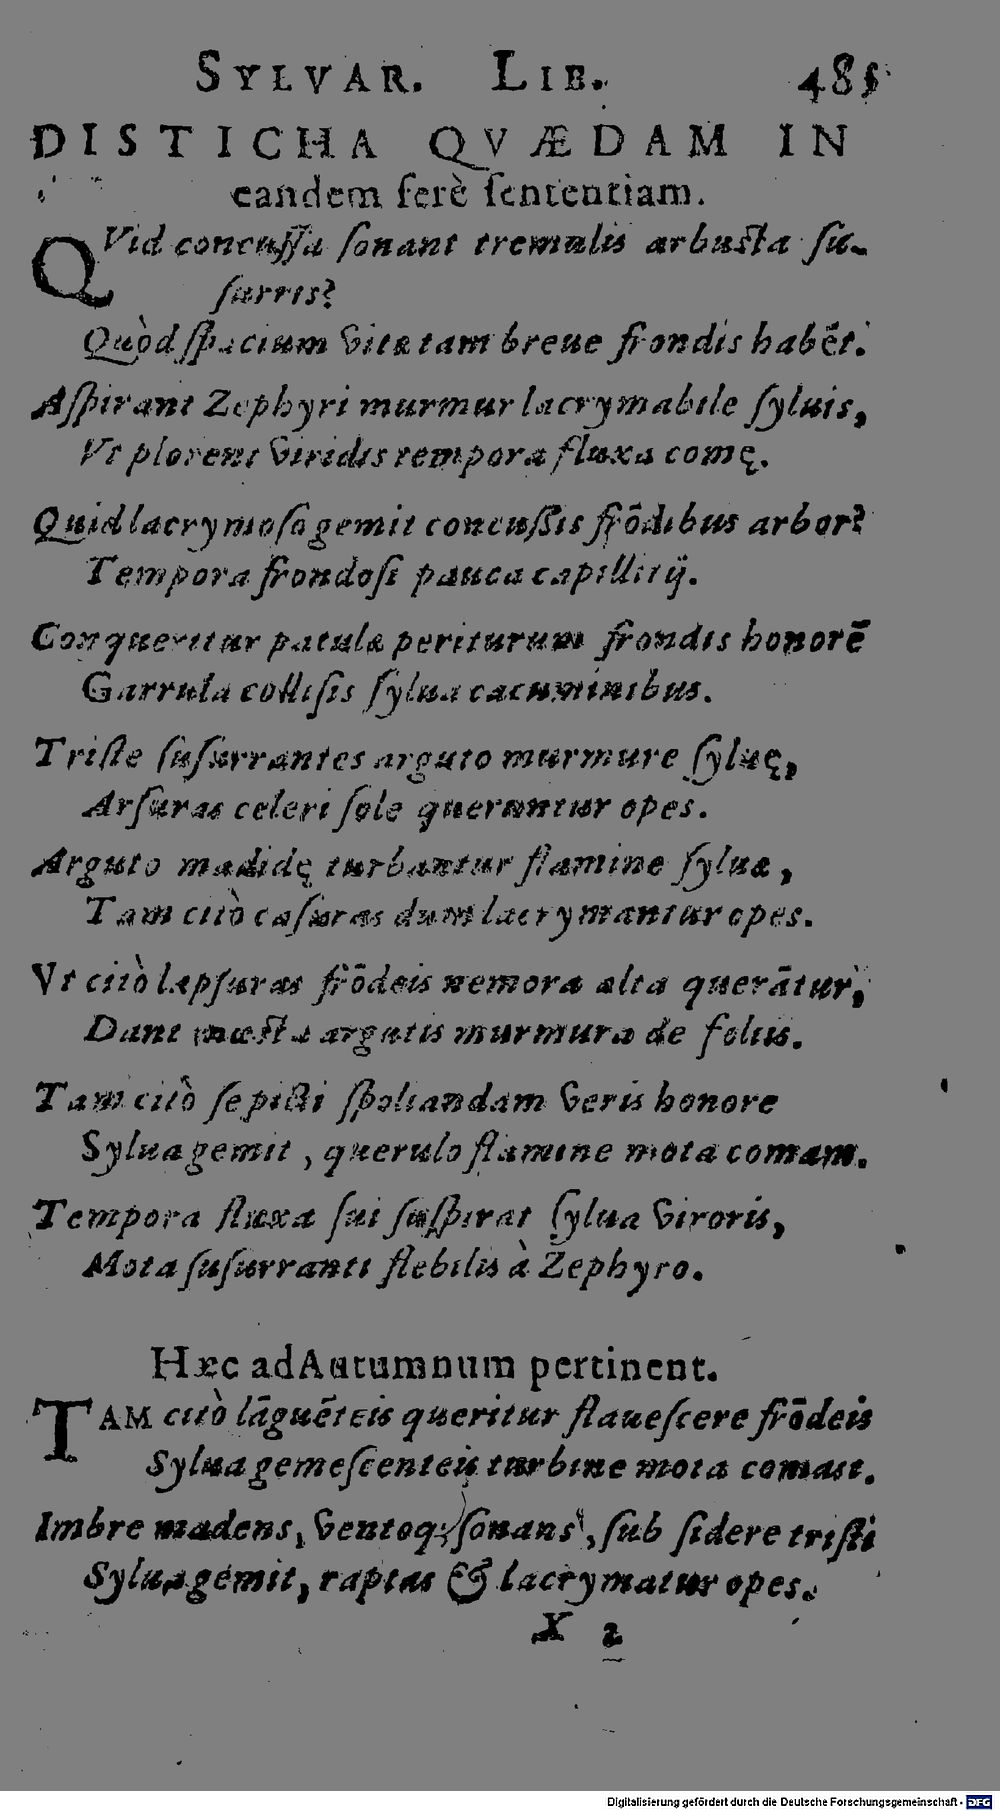 SYLVAR. LIB. 485
DISTICHA QVÆDAM IN
eandem ferè ſententiam.
QVid concuſſa ſonant tremulis arbuſta ſu-
ſurris?
Quòd ſpacium vitæ tam breue frondis habẽt.
Aſpirant Zephyri murmur lacrymabile ſyluis,
Vt plorent viridis tempora fluxa comę.
Quid lacrymoſa gemit concuſſis frõdibus arbor?
Tempora frondoſi pauca capillitij.
Conqueritur patulæ periturum frondis honorẽ
Garrula colliſis ſylua cacuminibus.
Triſte ſuſurrantes arguto murmure ſyluę,
Arſuras celeri ſole queruntur opes.
Arguto madidę turbantur flamine ſyluæ,
Tam citò caſuras dum lacrymantur opes.
Vt citò lapſuras frõdeis nemora alta querãtur,
Dant mœſta argutis murmura de foliis.
Tam citò ſe picti ſpoliandam veris honore
Sylua gemit, querulo flamine mota comam.
Tempora fluxa ſui ſuſpirat ſylua viroris,
Mota ſuſurranti flebilis à Zephyro.
Hæc ad Autumnum pertinent.
TAM citò lãguẽteis queritur flaueſcere frõdeis
Sylua gemeſcenteis turbine mota comas.
Imbre madens, ventoq; ſonans, ſub ſidere triſti
Sylua gemit, raptas & lacrymatur opes.
X 2
Digitalisierung gefördert durch die Deutsche Forschungsgemeinschaft - DFG